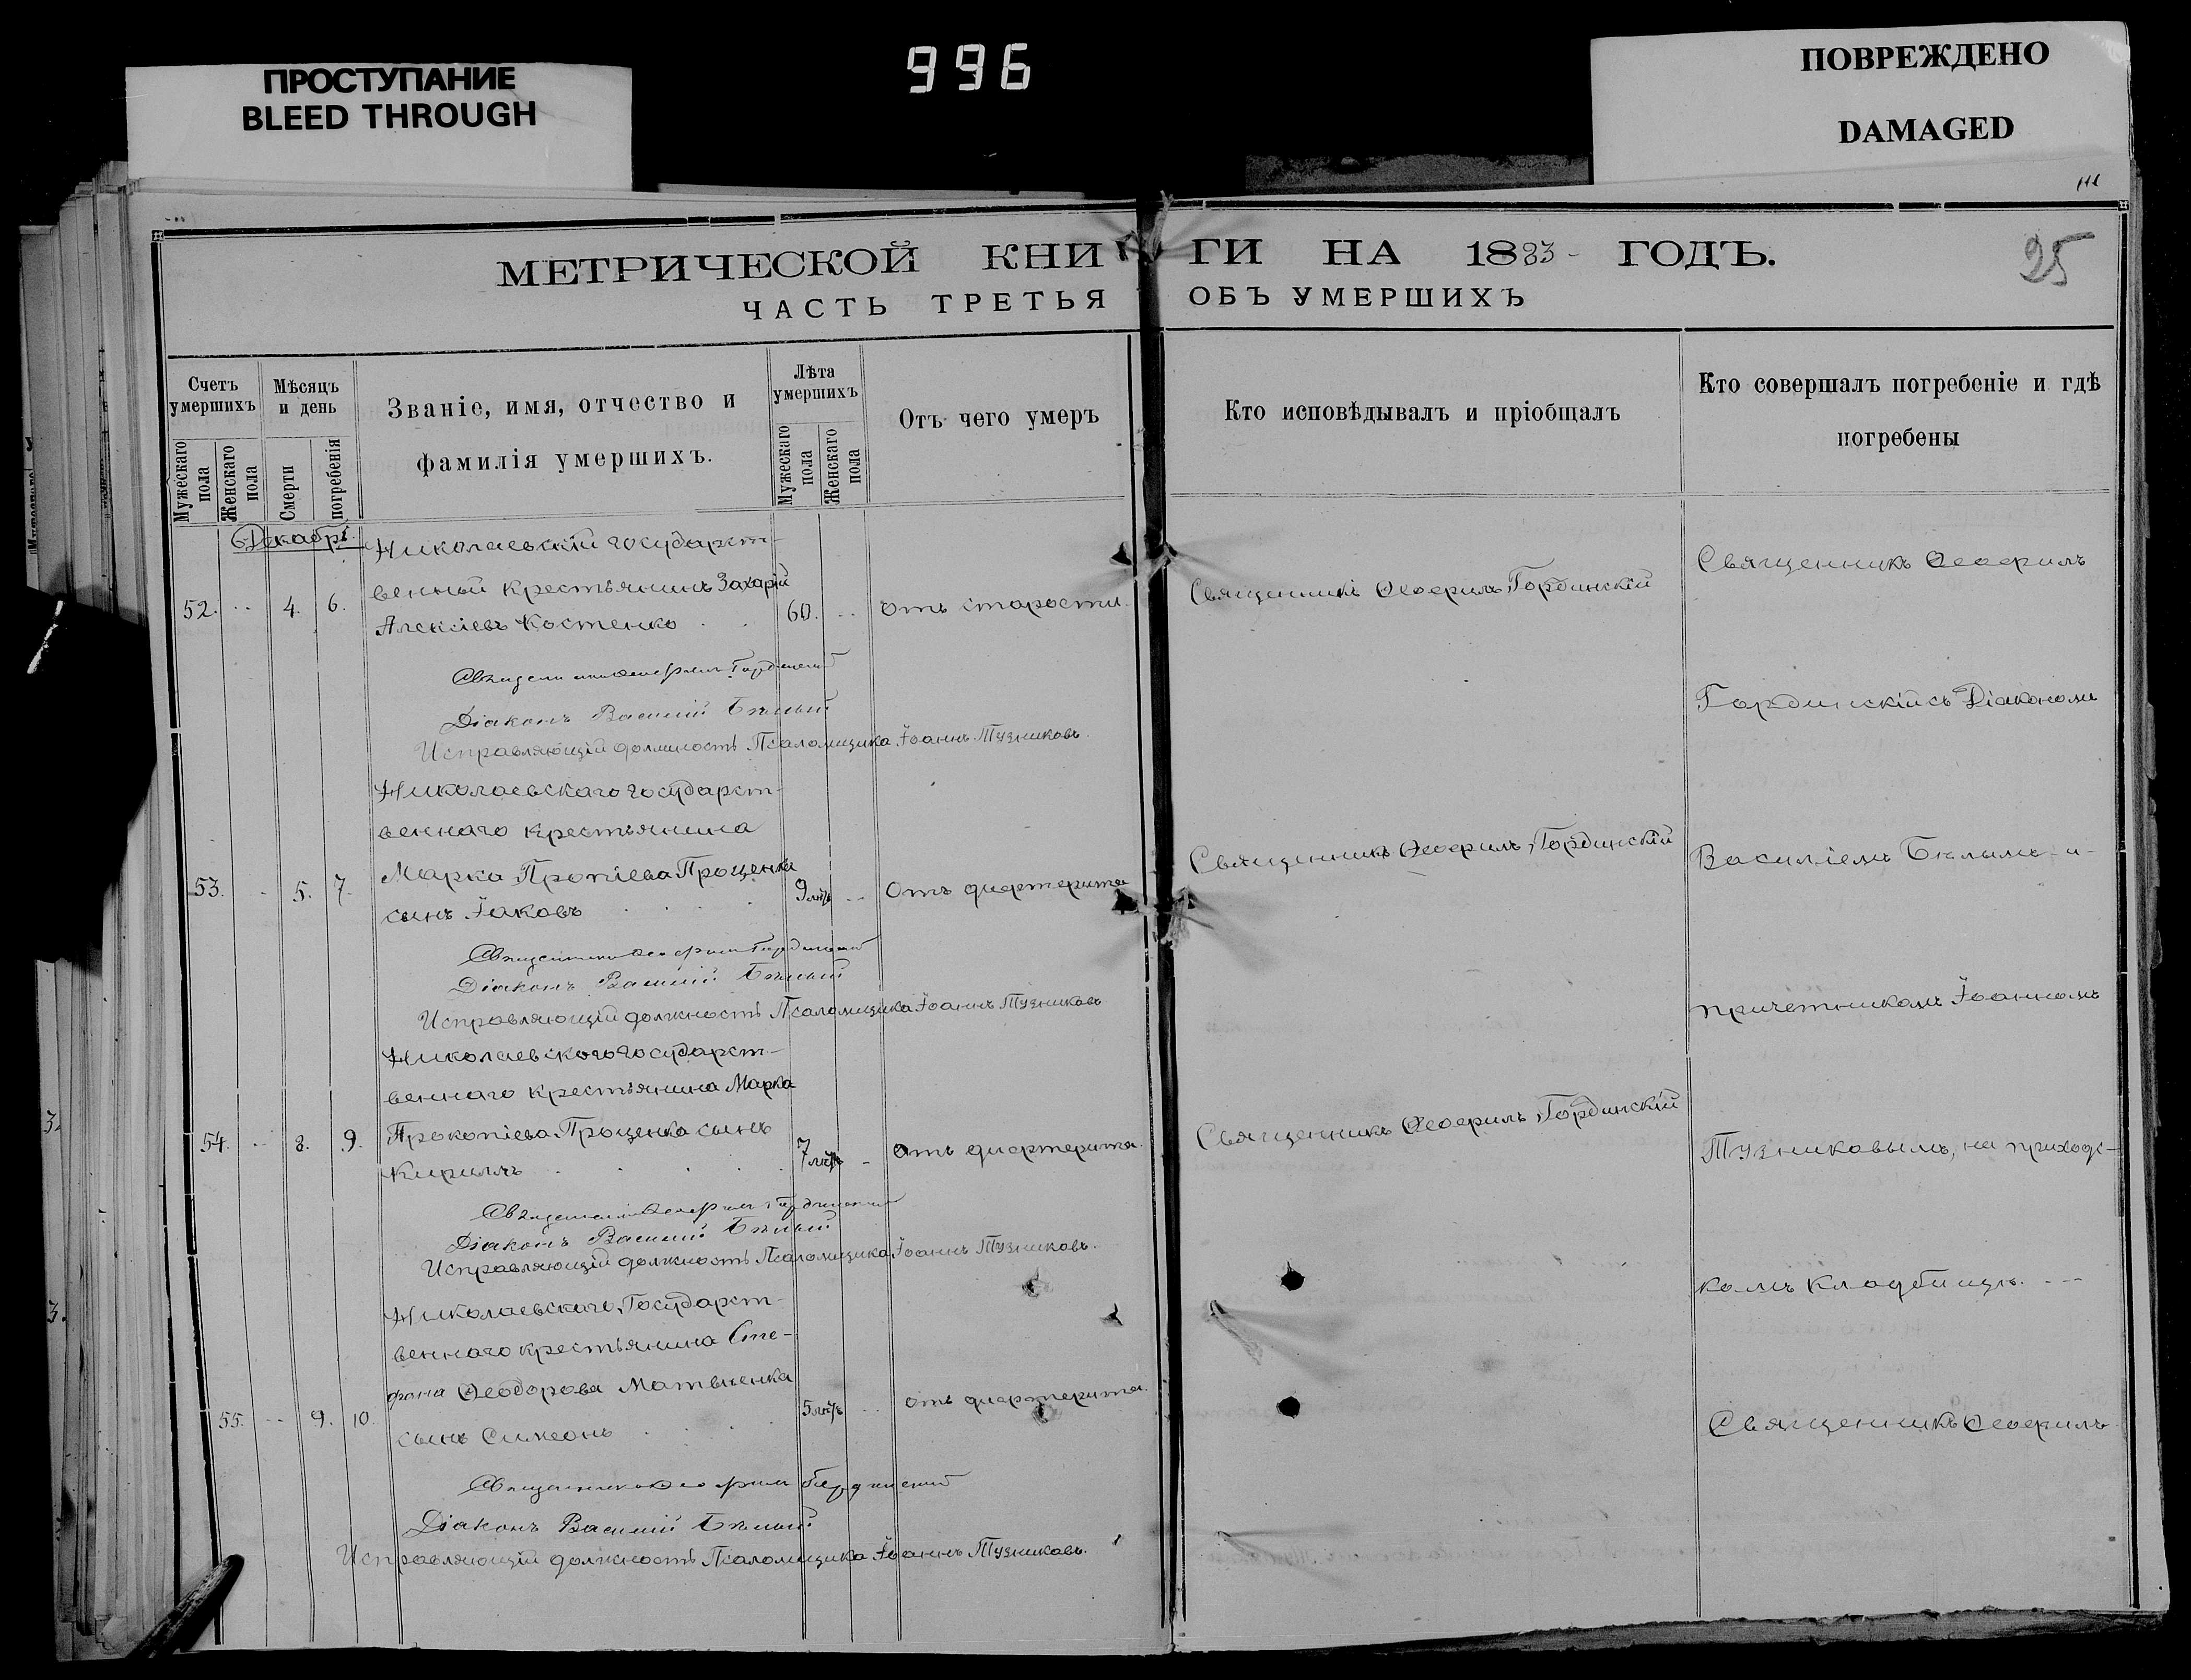 ПРОСТУПАНИЕ
BLEED THROUGH
996
ПОВРЕЖДЕНО
DAMAGED
МЕТРИЧЕСКОЙ КНИГИ НА 1883 ГОДЪ.
25
ЧАСТЬ ТРЕТЬЯ ОБЪ УМЕРШИХЪ
Счетъ умершихъ
Мужескаго пола
Женскаго пола
Мѣсяцъ и день
Смерти
погребенія
Званіе, имя, отчество и
фамилія умершихъ.
Лѣта умершихъ
Мужескаго пола
Женскаго пола
Отъ чего умеръ
Кто исповѣдывалъ и пріобщалъ
Кто совершалъ погребеніе и гдѣ
погребены
Декабрь
Николаевскій государст-
венный крестьянинъ Захарій
52. 4. 6. Алексіевъ Костенко 60. отъ старости. Священникъ Ѳеофилъ Гординскій
Священникъ Ѳеофилъ Гординскій
Діаконъ Василій Бѣлый
Исправляющій должность Псаломщика Іоаннъ Тузниковъ.
Николаевскаго государст-
веннаго крестьянина
Марка Пропіева Проценка
53. 5. 7. сынъ Іаковъ 9 лѣтъ Отъ дифтерита Священникъ Ѳеофилъ Гординскій
Священникъ Ѳеофилъ Гординскій
Діаконъ Василій Бѣлый
Исправляющій должность Псаломщика Іоаннъ Тузниковъ
Николаевскаго государст-
веннаго крестьянина Марка
54. 8. 9. Прокопіева Проценка сынъ
Кириллъ 7 лѣтъ отъ дифтерита. Священникъ Ѳеофилъ Гординскій
Священникъ Ѳеофилъ Гординскій
Діаконъ Василій Бѣлый
Исправляющій должность Псаломщика Іоаннъ Тузниковъ.
Николаевскаго Государст-
веннаго крестьянина Сте-
фана Ѳеодорова Матвѣенка
55. 9. 10. сынъ Симеонъ 5 лѣтъ отъ дифтерита.
Священникъ Ѳеофилъ Гординскій
Діаконъ Василій Бѣлый
Исправляющій должность Псаломщика Іоаннъ Тузниковъ.
Священникъ Ѳеофилъ
Гординскій съ Діакономъ
Василіемъ Бѣлымъ и
причетникомъ Іоанномъ
Тузниковымъ, на приходс-
комъ кладбищѣ.
Священникъ Ѳеофилъ